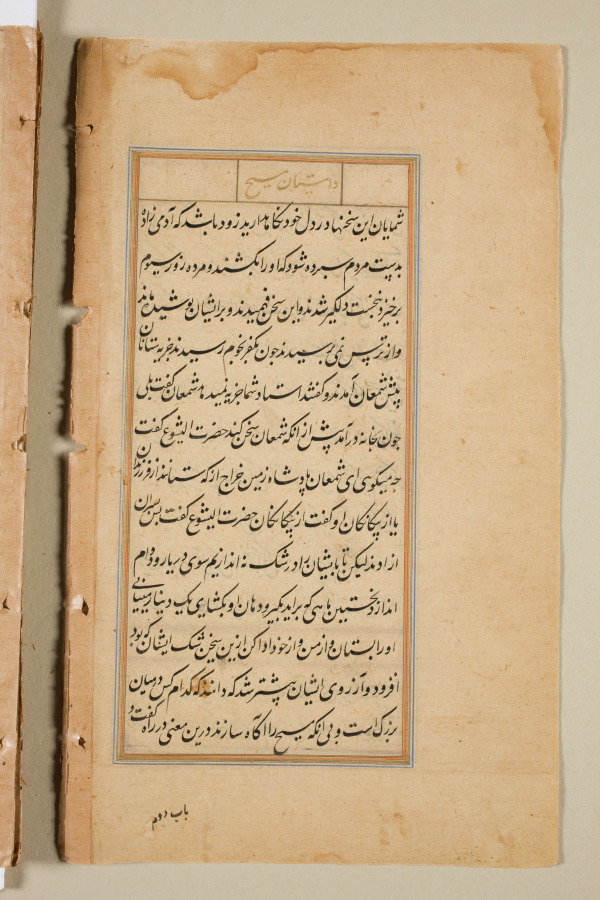 داستان مسیح
شمایان این سخنها در دل خود نگاه دارید زود باشد که آدمی زاد
بدست مردم سپرده شود که او را بکشند و مرده روز سیوم
برخیزد بخست دلگیر شدند و این سخن فهمیدند و برایشان پوشیده ماند
و از ترس نمی پرسیدند چون بکفرنحوم رسیدند جزیه ستانان
پیش شمعان آمدند و گفتند استاد شما جزیه نمیدهد شمعان گفت بلی
چون بخانه درآمد پیش از انکه شمعان سخن کند حضرت الیشوع گفت
چه میگویی ای شمعان پادشاه زمین خراج از که ستانند از فرزندان
یا از بیگانگان او گفت از بیگانگان حضرت الیشوع گفت پس پسران
ازادند لیکن تا بایشان براه رشک نه اندازیم سوی دریا رو دام
انداز نخستین ماهی که براید بگیر و دهان او بگشای یک دینار بیابی
او را بستان و از من و از خود ادا کن ازین سخن رشک ایشان که بود
افزود و آرزوی ایشان بیشتر شد که دانند که کدام کس درمیان
بزرک است و بی انکه مسیح را اگاه سازند درین معنی در راه گفت و
باب دوم